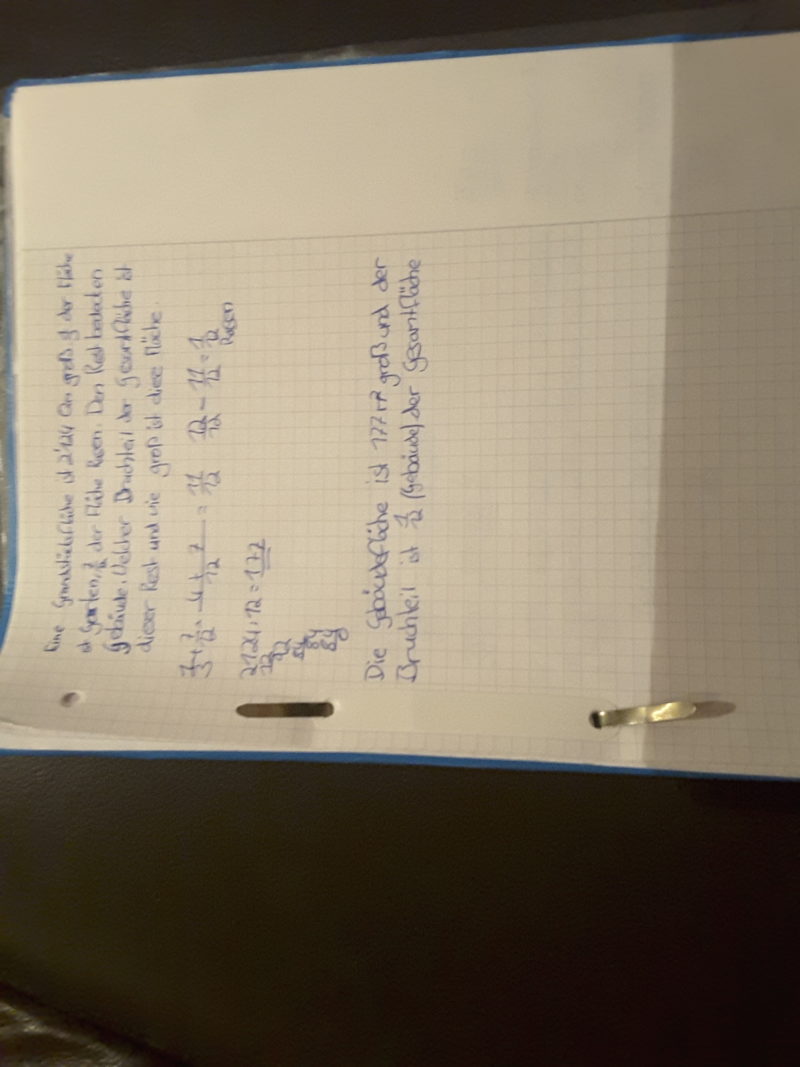 Eine Grundstücksfläche ist 2'124 qm groß 1/3 der Fläche
ist Garten, 7/12 der Fläche Rasen. Den Rest bedecken
Gebäude. Welcher Bruchteil der Gesamtfläche ist
dieser Rest und wie groß ist diese Fläche.
1/3 + 7/12 = 4 + 7 / 12 = 11/12 12/12 - 11/12 = 1/12
Rasen
2124 : 12 = 177
12
92
84
84
84
0
Die Gebäudefläche ist 177 m² groß und der
Bruchteil ist 1/12 (Gebäude) der Gesamtfläche